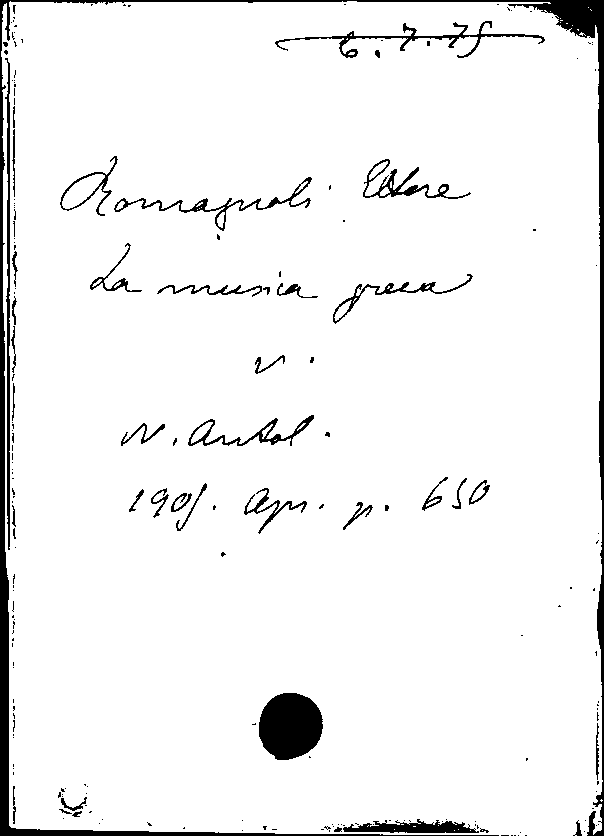 6.7.75
Romagnoli Ettore
La musica greca
v.
N. Antol.
1905. Apr. p. 650